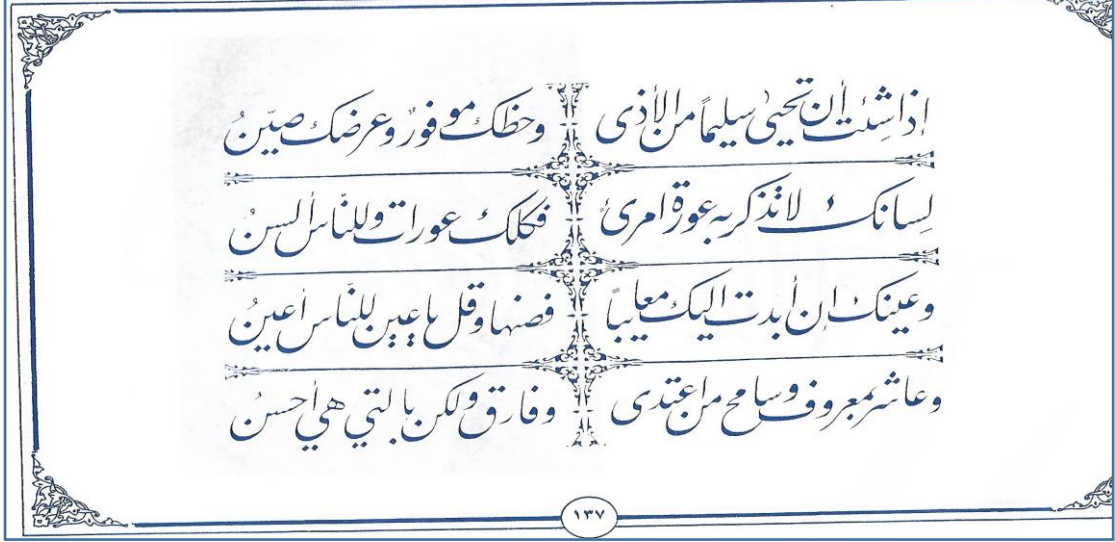 إذا شئت أن تحيى سليماً من الأذى وحظك موفورٌ وعرضك صيّنُ
لسانك لا تذكر به عورة امرئ فكلك عورات وللنّاس ألسنُ
وعينك إن أبدت إليك معايباً فصنها وقل يا عين للنّاس أعينُ
وعاشر بمعروف وسامح من اعتدى وفارق ولكن بالتي هي أحسنُ
١٣٧